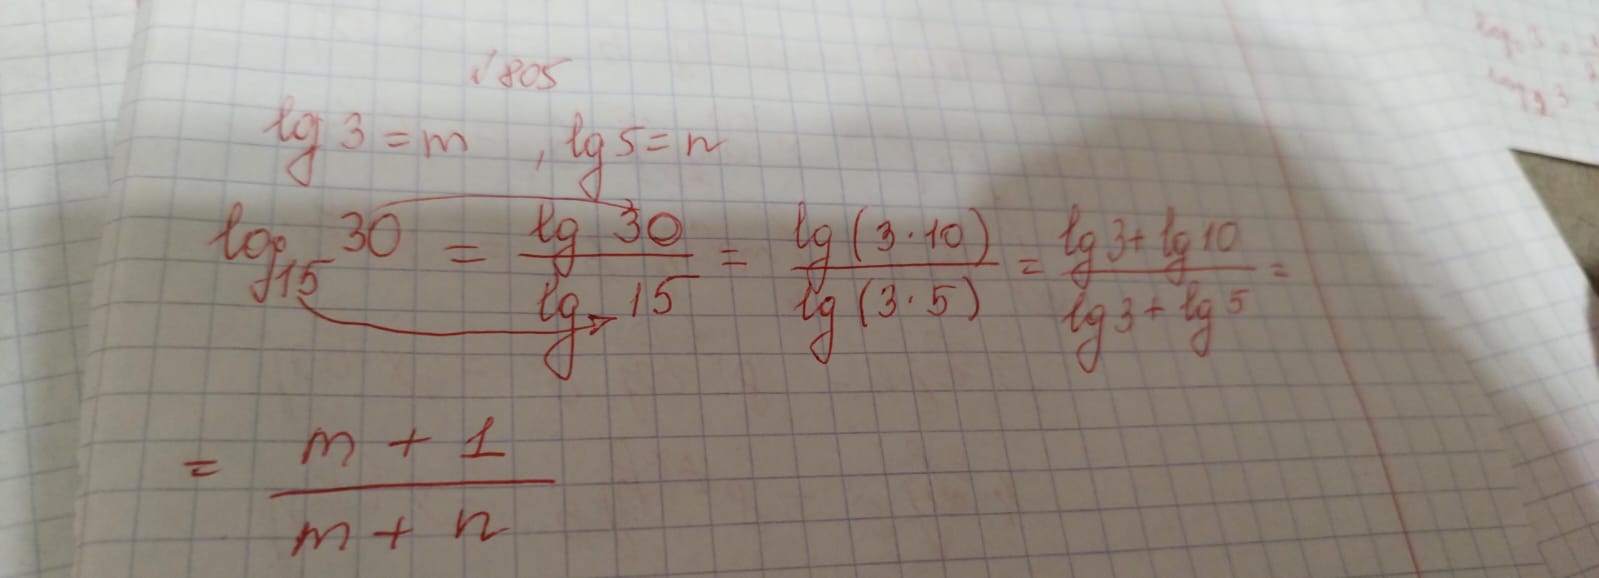 √805
lg 3 = m , lg 5 = n
log₁₅ 30 = lg 30 / lg 15 = lg (3 · 10) / lg (3 · 5) = lg 3 + lg 10 / lg 3 + lg 5 =
= m + 1 / m + n